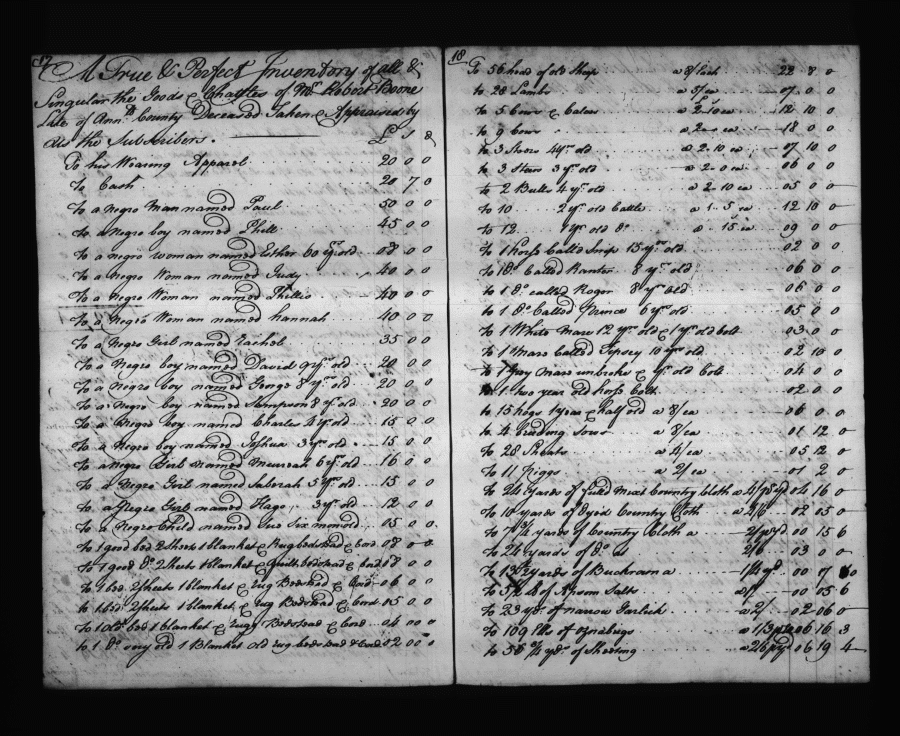 17
A True & Perfect Inventory of all &
Singular the Goods & Chattles of Mr. Robert Boone
Late of Annd. County Deceased Taken & Appraised by
us the Subscribers. £ S d
To his Wearing Apparel 20 0 0
To Cash 20 7 0
To a Negro Man named Paul 50 0 0
To a Negro boy named Phill 45 0 0
To a Negro woman named Esther 60 yr. old 08 0 0
To a Negro Woman named Judy 40 0 0
To a Negro Woman named Phillis 40 0 0
To a Negro Woman named hannah 40 0 0
To a Negro Girl named Rachel 35 0 0
To a Negro boy named David 9 yr. old 20 0 0
To a Negro boy named George 8 yr. old 20 0 0
To a Negro boy named Sampson 8 yr old 20 0 0
To a Negro boy named Charles 4 yr old 15 0 0
To a Negro boy named Joshua 3 yr old 15 0 0
To a Negro Girl named 6 yr old 16 0 0
To a Negro Girl named Deborah 5 yr. old 15 0 0
To a Negro Girl named 3 yr old 12 0 0
To a Negro Child named Six mo. old 05 0 0
To 1 good bed 2 Sheets 1 blanket & Rug bedstead & Cord 08 0 0
To 1 good Do. 2 Sheets 1 blanket & quilt bedstead & Cord 0 0
To 1 bed 2 Sheets 1 blanket & rug Bedstead & Cord 06 0 0
To 1 bed 2 Sheets 1 blanket & rug Bedstead & Cord 05 0 0
To 1 old bed 1 blanket & rugg Bedstead & Cord 04 00 0
To 1 Do. very old 1 Blanket old rug bedstead & Cord 02 00 0
18
To 56 head of old Sheep a 8/ Each 22 8 0
To 28 Lambs a 5/ ea 07 0 0
To 5 Cows & Calves a 2-10 ea 12 10 0
To 9 Cows a 2-0 ea 18 0 0
To 3 Steers 4 yr. old a 2-10 ea 07 10 0
To 3 Steers 3 yr. old a 2-0 ea 06 0 0
To 2 Bulls 4 yr. old a 2 10 ea 05 0 0
To 10 2 yr. old Cattle a 1..5 ea 12 10 0
To 12 1 yr old Do. a 15 ea 09 0 0
To 1 horse Call'd Snip 15 yr. old 02 0 0
To 1 Do. Called Ranter 8 yr. old 06 0 0
To 1 Do. called Roger 8 yr old 06 0 0
To 1 Do. Called Prince 6 yr. old 05 0 0
To 1 White Mare 12 yr. old & 1 yr. old Colt 03 0 0
To 1 Mare Called Tipsey 10 yr. old 02 10 0
To 1 Grey Mare unbroke & yr. old Colt 04 0 0
To 1 two year old horse Colt 02 0 0
To 15 hogs 1 year & half old a 8/ ea 06 0 0
To 4 breeding Sows a 8/ ea 01 12 0
To 28 Shoats a 4/ ea 05 12 0
To 11 Piggs a 2/ ea 01 2 0
To 24 yards of full'd Mix'd Country Cloth a 4/ pr yd 04 16 0
To 10 yards of Dyed Country Cloth a 2/6 02 05 0
To 7 3/4 yards of Country Cloth a 2/ pr yd 00 15 6
To 24 yards of Do. a 2/6 03 0 0
To 13 1/2 yards of Buckram a 1/4 yd 00 17 0
To of Epsom Salts a 1/ 00 15 6
To 23 yds. of narrow Garlick a 2/ 02 06 0
To 109 Ells of oznabrigs a 1/3 06 16 3
To 55 3/4 yds. of Sheeting a 2/6 pr yd 06 19 4